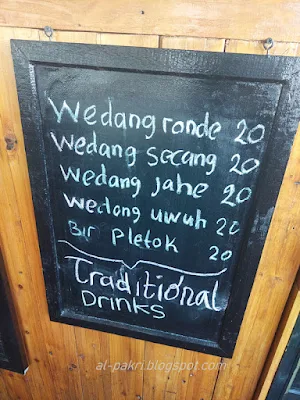 Wedang ronde 20
Wedang secang 20
Wedang Jahe 20
Wedong uwuh 20
Bir Pletok 20
Traditional
DRINKS
al-pakri.blogspot.com